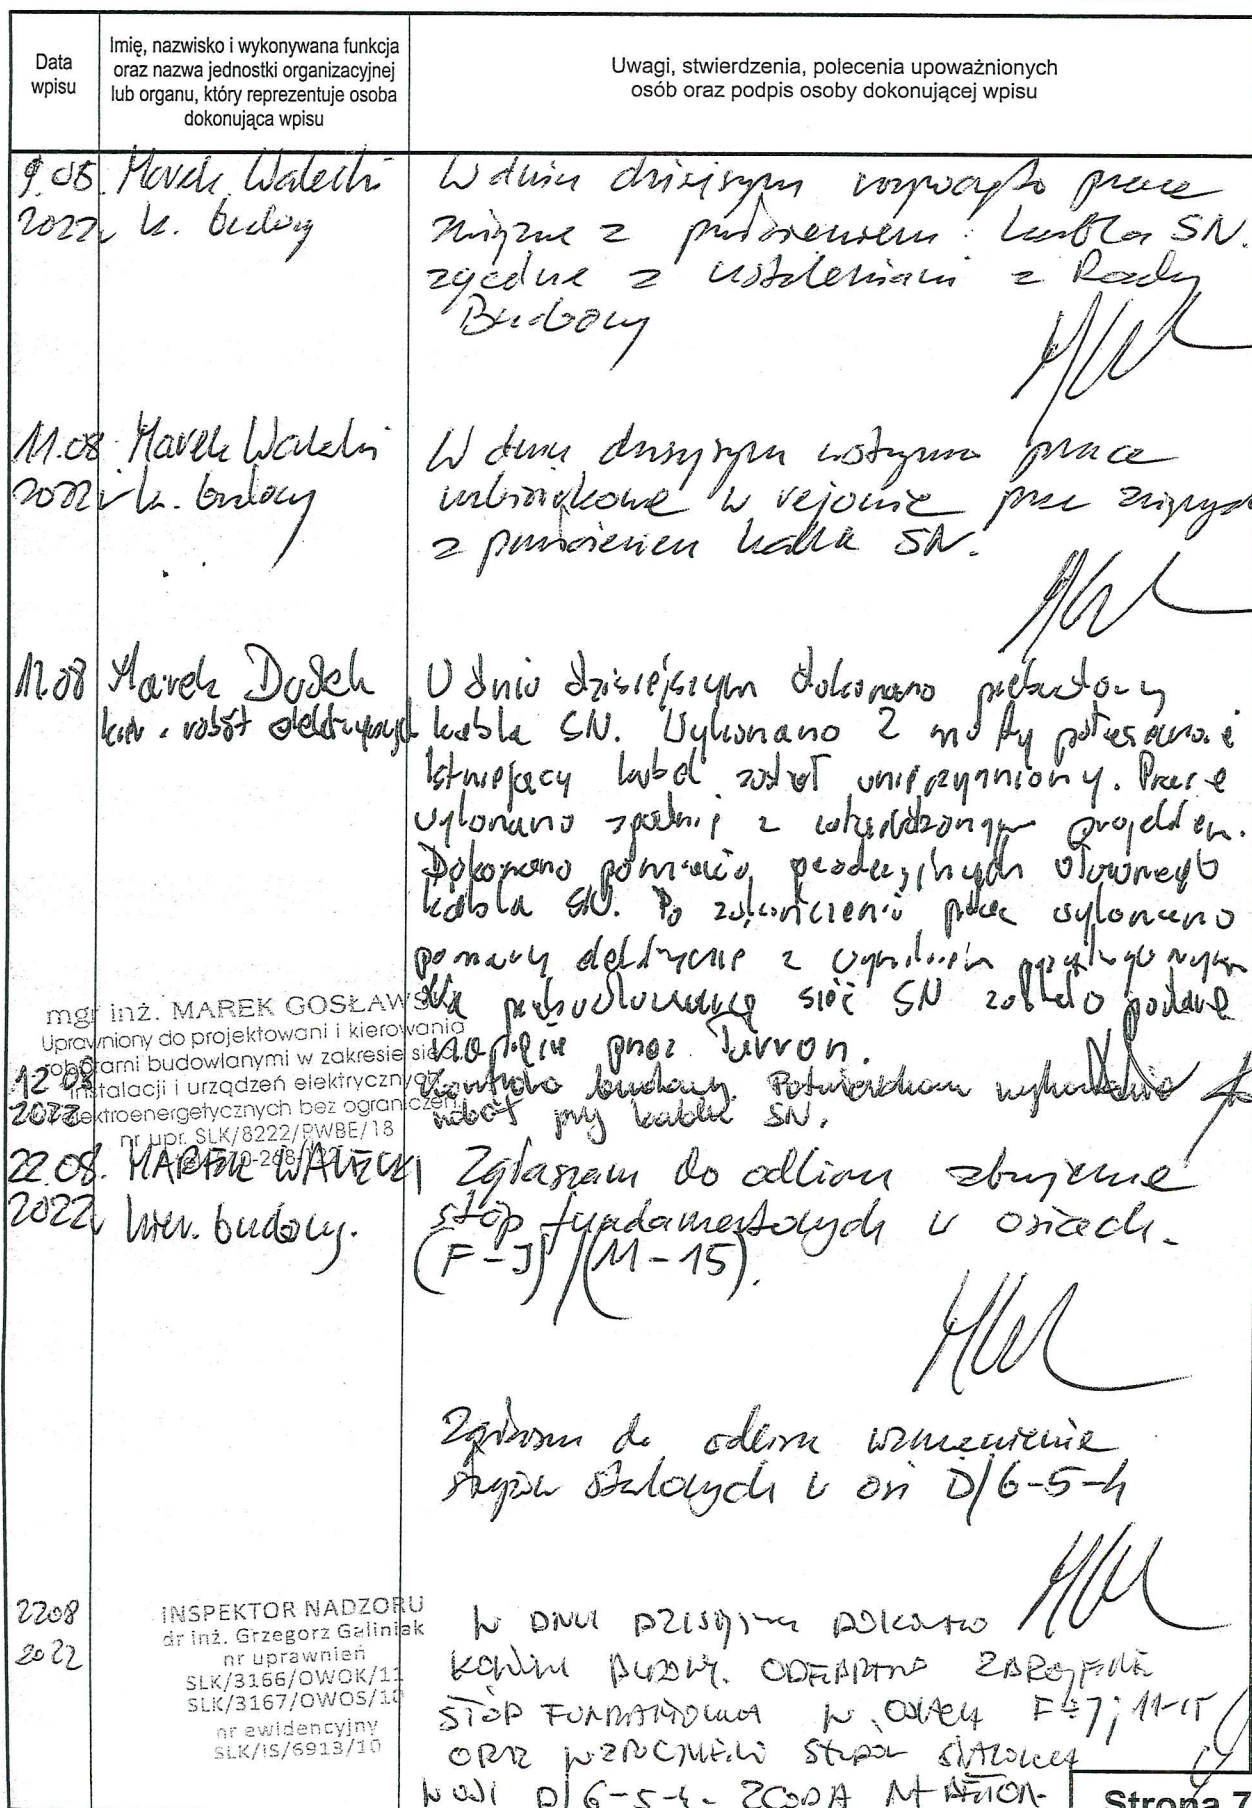 Data
wpisu
Imię, nazwisko i wykonywana funkcja
oraz nazwa jednostki organizacyjnej
lub organu, który reprezentuje osoba
dokonująca wpisu
Uwagi, stwierdzenia, polecenia upoważnionych
osób oraz podpis osoby dokonującej wpisu
9.08. Marek Walecki
2022r k. budowy
W dniu dzisiejszym rozpoczęto prace
związane z przełożeniem kabla SN.
zgodnie z ustaleniami z Rady
Budowy
11.08 Marek Walecki
2022r k. budowy
W dniu dzisiejszym wstrzymano prace
w rejonie prac związanych
z przełożeniem kabla SN.
11.08 Marek Dudek
kier. robót elektrycznych
W dniu dzisiejszym dokonano przebudowy
kabla SN. Wykonano 2 mufy
Istniejący kabel został unieczynniony. Prace
wykonano zgodnie z projektem.
Dokonano pomiarów geodezyjnych ułożonego
kabla SN. Po zakończeniu prac wykonano
pomiary elektryczne z wynikiem pozytywnym
Na przebudowaną sieć SN zostało podane
napięcie przez Tauron.
mgr inż. MAREK GOSŁAWSKI
Uprawniony do projektowani i kierowania
robotami budowlanymi w zakresie sieci
instalacji i urządzeń elektrycznych
elektroenergetycznych bez ograniczeń
nr upr. SLK/8222/PWBE/18
12.08
2022
Kontrola budowy. Potwierdzam wykonanie
robót przy kablu SN.
22.08. MAREK WALECKI
2022r kier. budowy.
Zgłaszam do odbioru zbrojenie
stóp fundamentowych w osiach.
(F-J)/(11-15).
Zgłaszam do odbioru wzmocnienie
słupów stalowych w osi D/6-5-4
2208
2022
INSPEKTOR NADZORU
dr inż. Grzegorz Galiniak
nr uprawnień
SLK/3166/OWOK/11
SLK/3167/OWOS/10
nr ewidencyjny
SLK/IS/6913/10
W DNIU DZISIEJSZYM DOKONANO
KONTROLI BUDOWY. ODEBRANO ZBROJENIE
STÓP FUNDAMENTOWYCH W OSIACH F-J; 11-15
ORAZ WZMOCNIENIE SŁUPÓW STALOWYCH
W OSI D/6-5-4. ZGODA NA
Strona 7